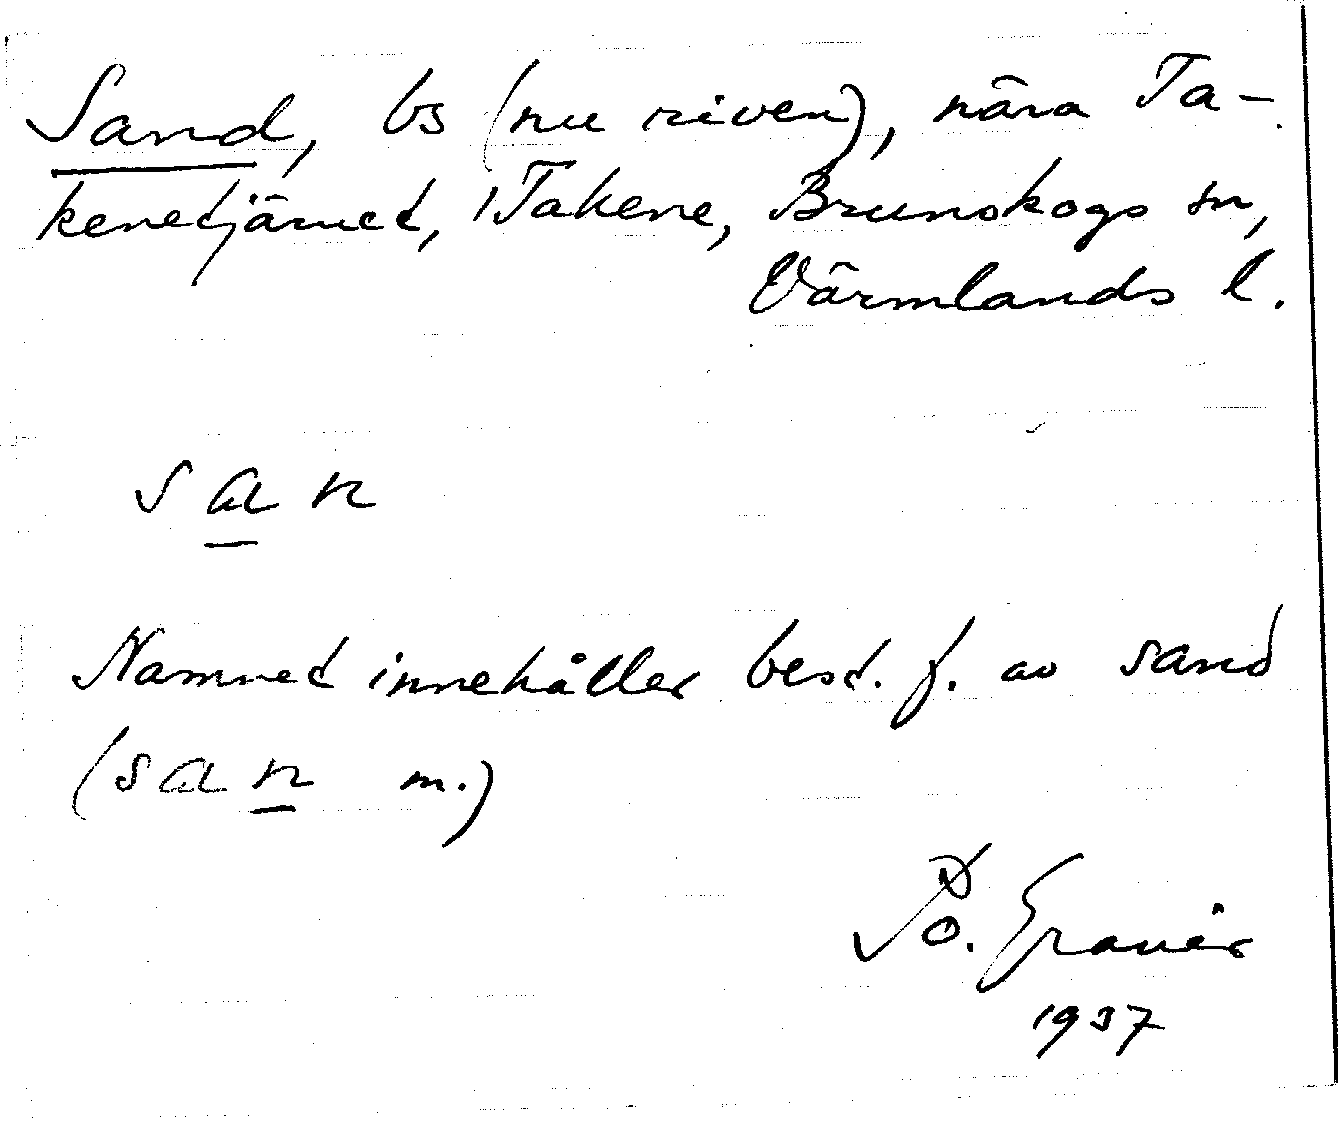 Sand, bs (nu riven), nära Ta-
kenetjärnet, Takene, Brunskogs sn,
Värmlands l.
san
Namnet innehåller best. f. av sand
(san m.)
1937